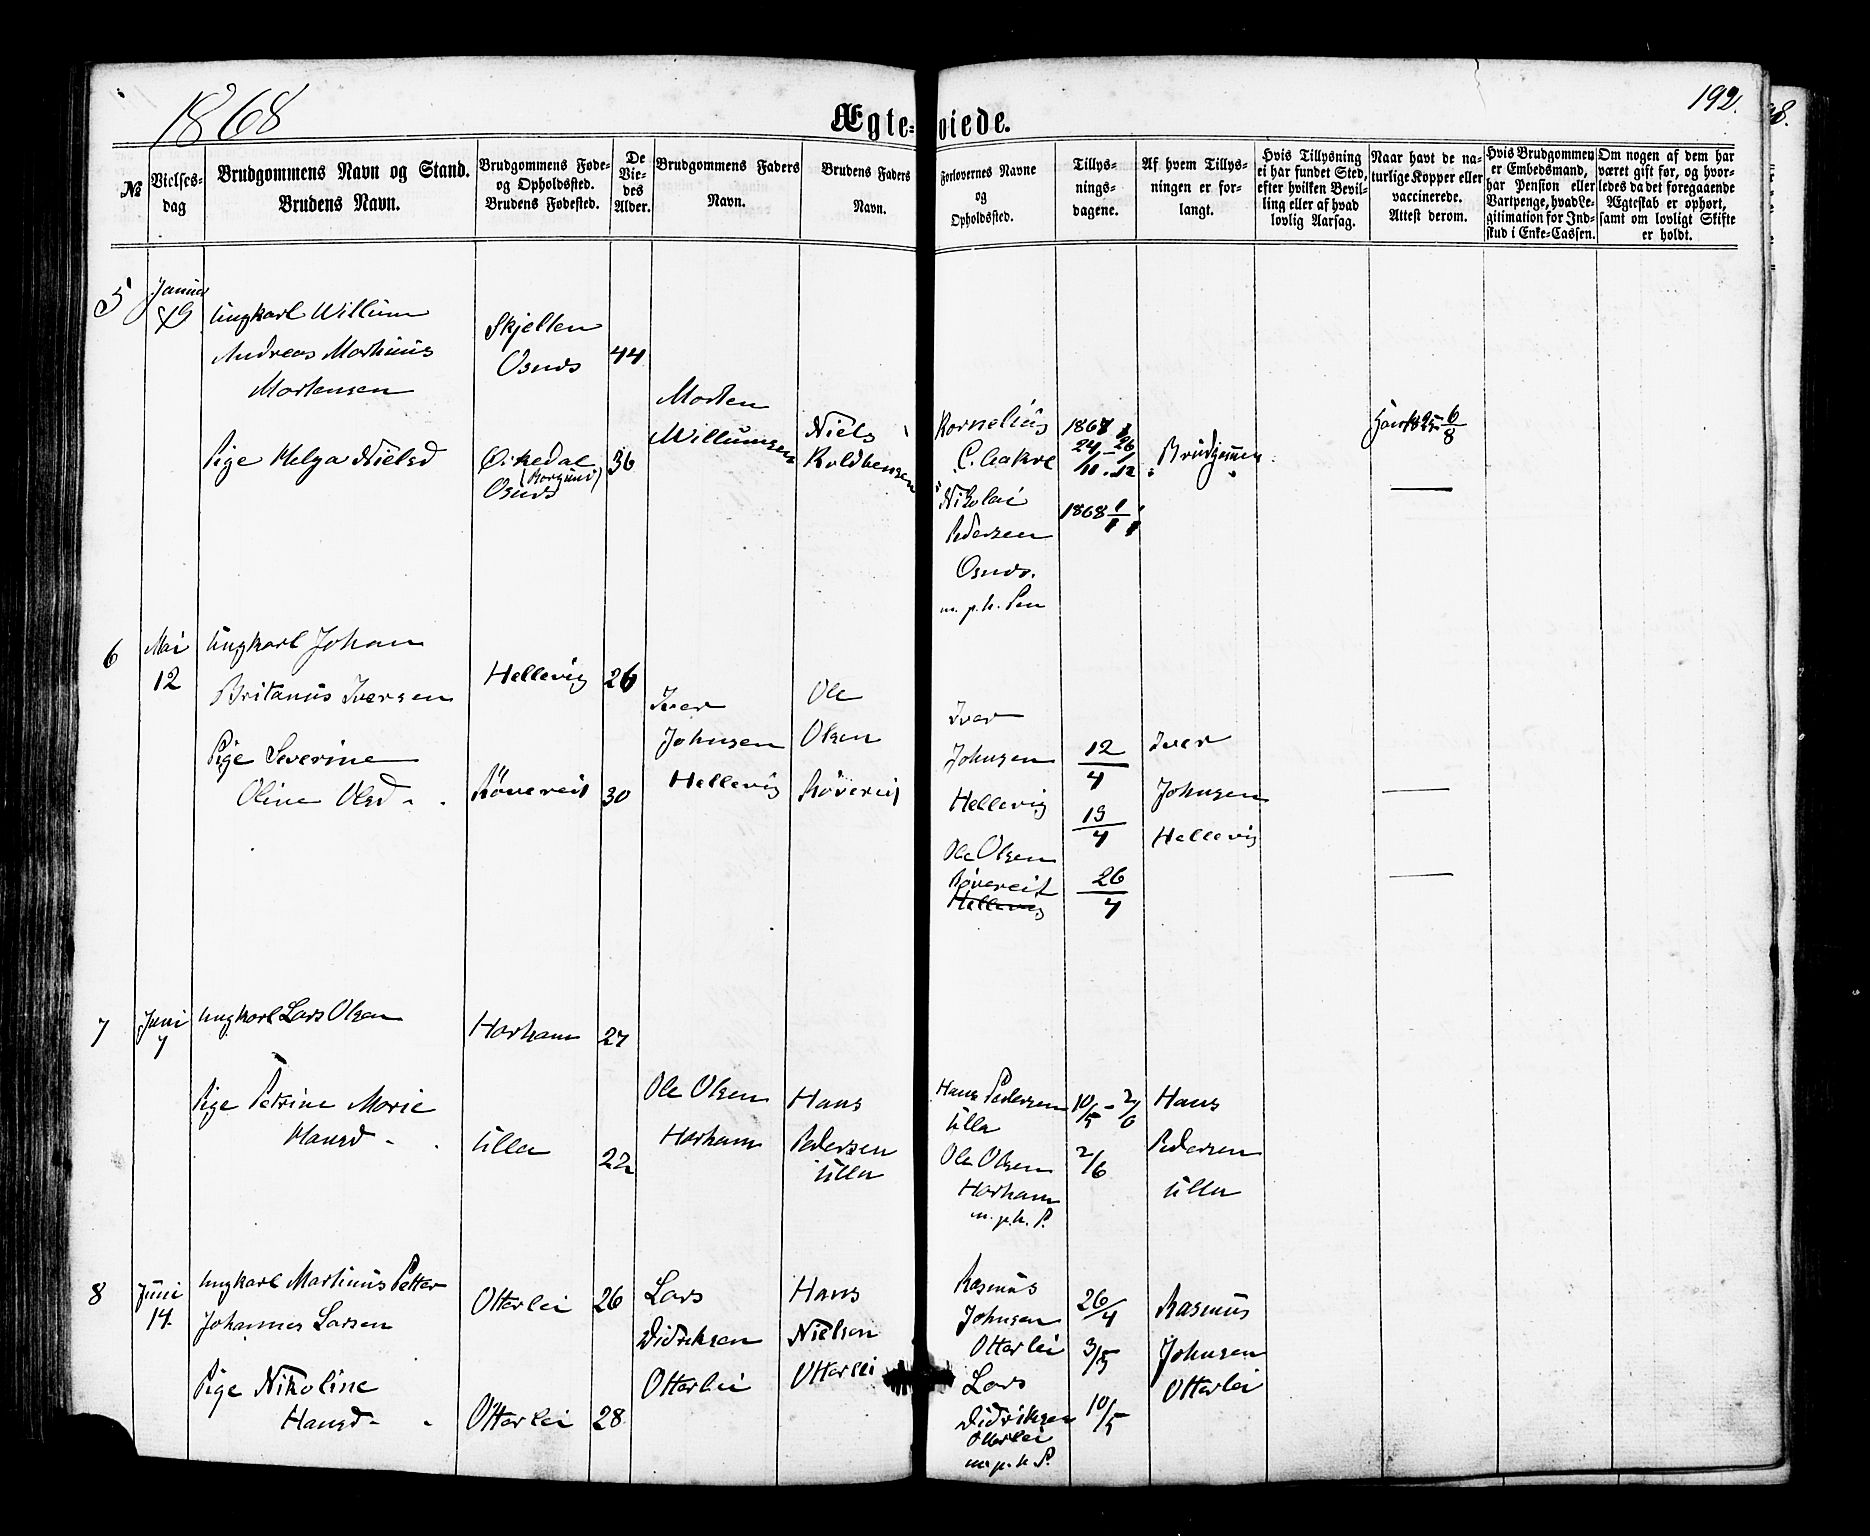 1868
192.
Ægte=
viede.
№
Vielses-
dag
Brudgommens Navn og Stand.
Brudens Navn.
Brudgommens Føde-
og Opholdssted.
Brudens Fødested.
De
Vie-
des
Alder.
Brudgommens Faders
Navn.
Brudens Faders
Navn.
Forlovernes Navne
og
Opholdssted.
Tillys-
nings-
dagene.
Af hvem Tillys-
ningen er for-
langt.
Hvis Tillysning
ei har fundet Sted,
efter hvilken Bevil-
ling eller af hvad
lovlig Aarsag.
Naar havt de na-
turlige Kopper eller
vaccinerede.
Attest derom.
Hvis Brudgommen
er Embedsmand,
har Pension eller
Vartpenge, hvad Le-
gitimation for Ind-
skud i Enke-Cassen.
Om nogen af dem har
været gift før, og hvor-
ledes da det foregaaende
Ægteskab er ophørt,
samt om lovligt Skifte
er holdt.
5
Januar
Ungkarl Willum
Andreas Martinus
Mortensen
Skjelten
Osnes
44
Morten
Willumsen
Pige Helga Nielsd
Osnes
36
Niels
Kornelius
Nikolai
Pedersen
Osnes.
m. p. h. Pen
1868
24 - 26
Brudgommen
1868 1/1
6
Mai
12
Ungkarl Johan
Britanus Iversen
Hellevig
26
Iver
Johnsen
Hellevig
Ole
Olsen
Røvereit
Pige Severine
Oline Olsd - .
Røvereit
30
Iver
Johnsen
Hellevig
Ole Olsen
Røvereit
Hellevig
12/4
19/4
26/4
Iver
Johnsen
Hellevig
7
Juni
7
Ungkarl Lars Olsen
Harham
27
Ole Olsen
Harham
Hans
Pedersen
Ulla
Pige Petrine Marie
Hansd - .
Ulla
22
Hans Pedersen
Ulla
Ole Olsen
Harham
m. p. h. P.
10/5 - 2/6
2/6
Hans
Pedersen
Ulla
8
Juni
14
Ungkarl Martinus Petter
Johannes Larsen
Otterlei
26
Lars
Didriksen
Otterlei
Hans
Nielsen
Otterlei
Pige Nikoline
Hansd - .
Otterlei
28
Rasmus
Johnsen
Otterlei
Lars
Didriksen
Otterlei
m. p. h P.
26/4
3/5
10/5
Rasmus
Johnsen
Otterlei